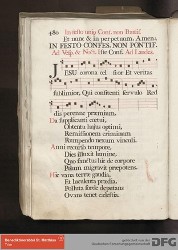 480 In festo unius Conf. non Pontif.
Et nunc & in perpetuum. Amen.
IN FESTO CONFES. NON PONTIF.
Ad Vesp. & Noct. Iste Conf. Ad Laudes.
IESU corona celsior Et veritas
sublimior, Qui confitenti servulo Red
dis perenne praemium.
Da supplicanti coetui,
Obtentu hujus optimi,
Remissionem criminum
Rumpendo nexum vinculi.
Anni recurso tempore,
Dies illuxit lumine,
Quo sanctus hic de corpore
Polum migravit praepotens.
Hic vana terrae gaudia,
Et luculenta praedia,
Polluta sorde deputans
Ovans tenet caelestia.
DFG